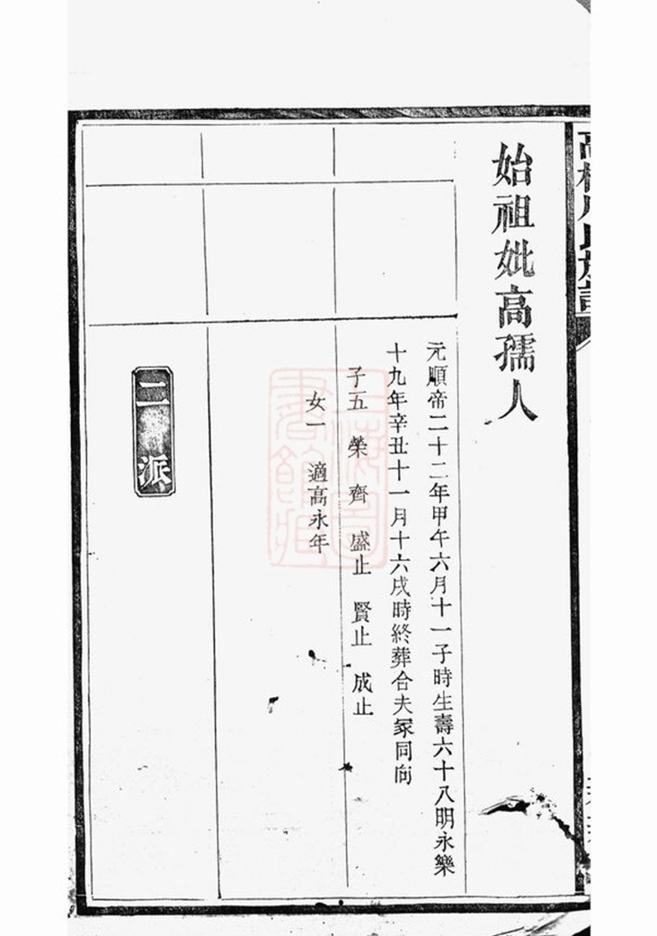 始祖妣高孺人
元順帝二十二年甲午六月十一子時生壽六十八明永樂
十九年辛丑十一月十六戌時終葬合夫冢同向
子五 榮 齊 盛止 賢止 成止
女一 適高永年
二 派
上海圖書館藏